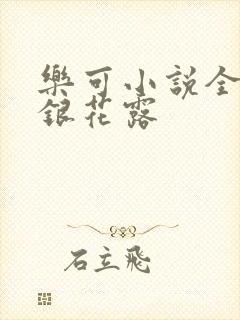 樂可小説全
銀花露
石立飛